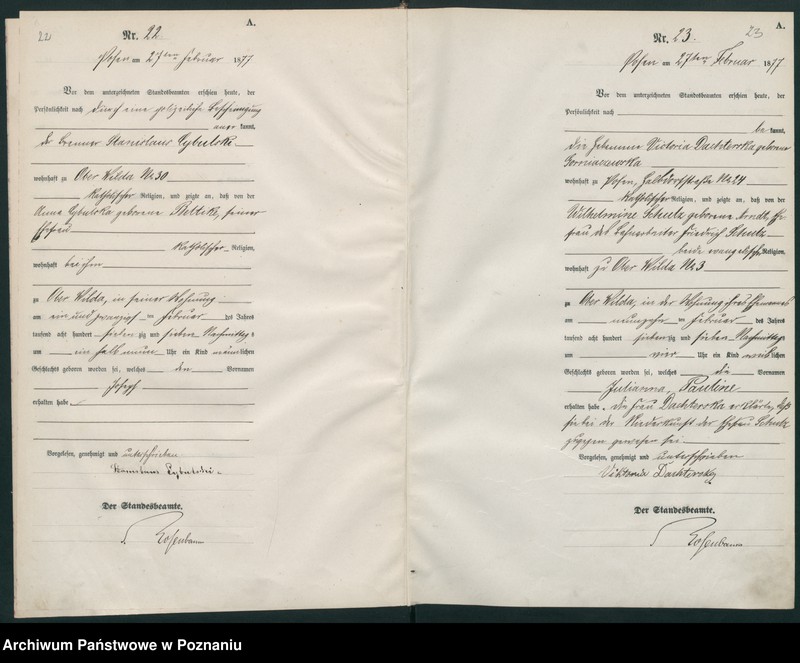 22
A.
Nr. 22
Posen am 27ten Februar 1877
Vor dem unterzeichneten Standesbeamten erschien heute, der
Persönlichkeit nach durch eine polizeiliche Bescheinigung
aner kannt,
der Brenner Stanislaus Cybulski
wohnhaft zu Ober Wilda No 30
katholischer Religion, und zeigte an, daß von der
Anna Cybulska geborene Bittke, seiner
Ehefrau
katholischer Religion,
wohnhaft bei ihm
zu Ober Wilda, in seiner Wohnung
am ein und zwanzigsten Februar des Jahres
tausend acht hundert sieben zig und sieben Nachmittags
um ein halb neun Uhr ein Kind männlichen
Geschlechts geboren worden sei, welches den Vornamen
Joseph
erhalten habe
Vorgelesen, genehmigt und unterschrieben
Stanislaus Cybulski
Der Standesbeamte.
Rosenbaum
23
A.
Nr. 23.
Posen am 27ten Februar 1877
Vor dem unterzeichneten Standesbeamten erschien heute, der
Persönlichkeit nach
be kannt,
die Hebamme Victoria Dachterska geborene
wohnhaft zu Posen, Halbdorfstraße No 24
katholischer Religion, und zeigte an, daß von der
Wilhelmine Schulz geborene Arndt, Ehe-
frau des Friedrich Schulz
beide evangelischer Religion,
wohnhaft zu Ober Wilda No 3
zu Ober Wilda, in der Wohnung ihres Ehemannes
am neunzehnten Februar des Jahres
tausend acht hundert siebenzig und sieben Nachmittags
um vier Uhr ein Kind weiblichen
Geschlechts geboren worden sei, welches die Vornamen
Julianna, Pauline
erhalten habe. Die Frau Dachterska erklärte, daß
sie bei der Niederkunft der Ehefrau Schulz
zugegen gewesen sei
Vorgelesen, genehmigt und unterschrieben
Viktoria Dachterska
Der Standesbeamte.
Rosenbaum
Archiwum Państwowe w Poznaniu